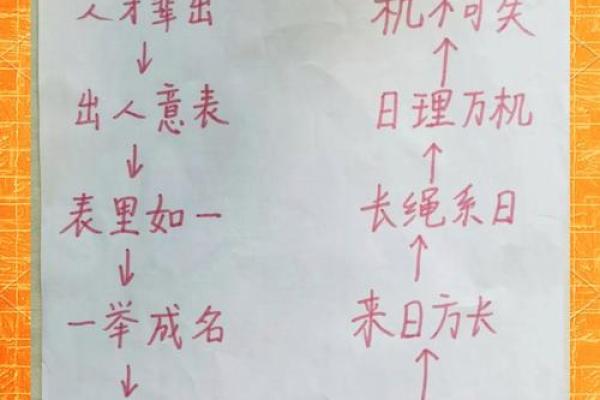 人才辈出
机不可失
出人意表
日理万机
表里如一
长绳系日
一举成名
来日方长